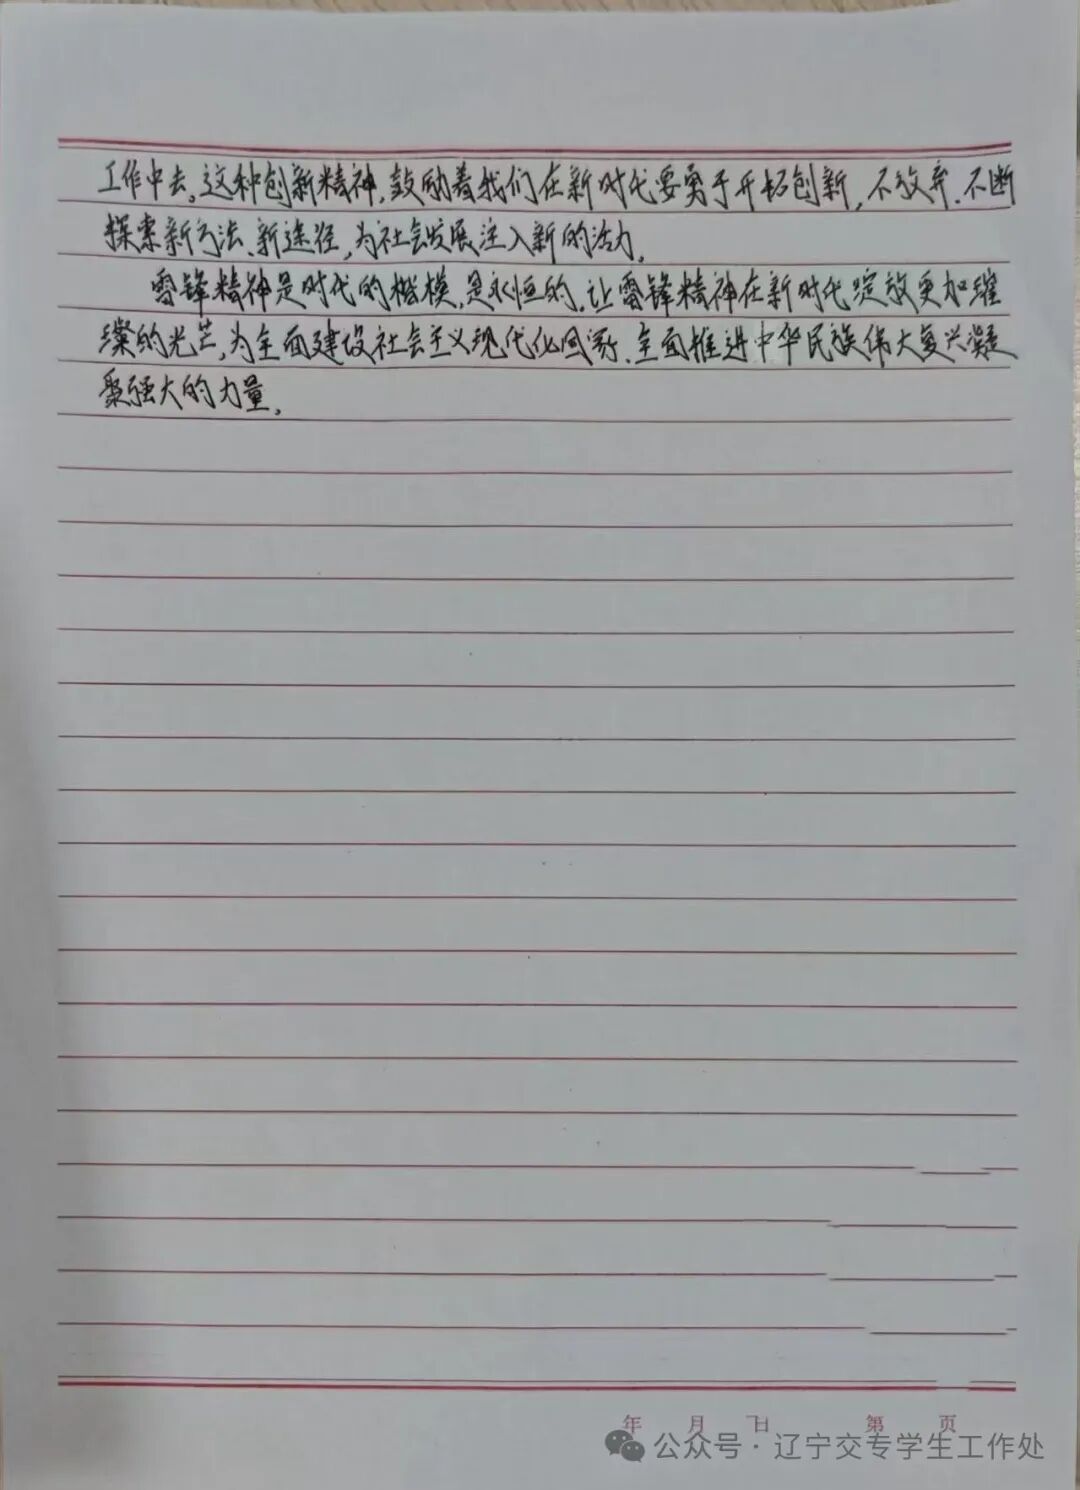 工作中去。这种创新精神,鼓励着我们在新时代要勇于开拓创新,不放弃.不断
探索新方法、新途径,为社会发展注入新的活力。
雷锋精神是时代的楷模,是永恒的.让雷锋精神在新时代绽放更加璀
璨的光芒,为全面建设社会主义现代化国家、全面推进中华民族伟大复兴凝
聚强大的力量。
年 月 日 第 页
公众号·辽宁交专学生工作处